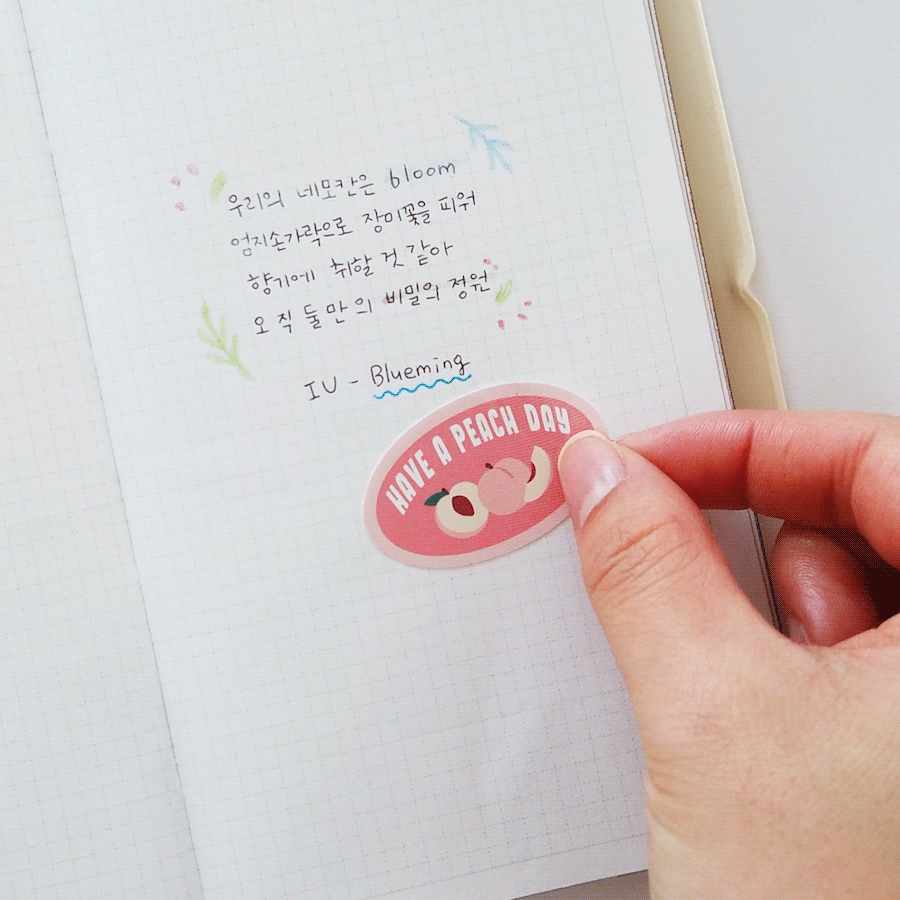 우리의 네모칸은 bloom
엄지손가락으로 장미꽃을 피워
향기에 취할 것 같아
오직 둘만의 비밀의 정원
IU - Blueming
HAVE A PEACH DAY